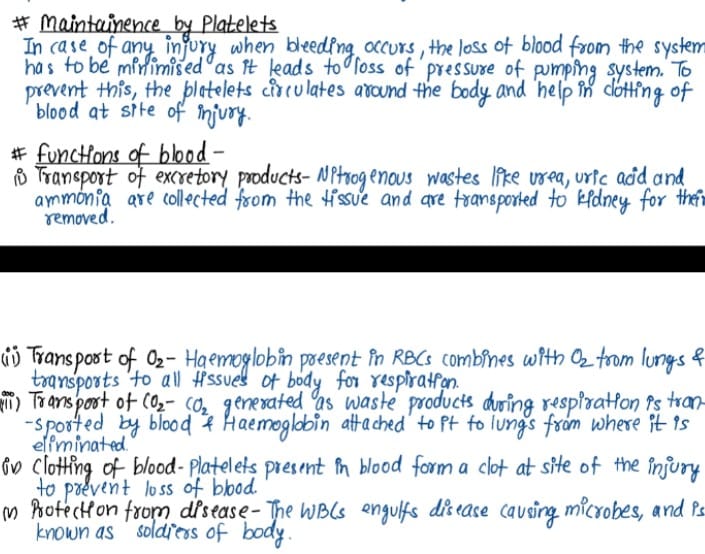 # Maintainence by Platelets
In case of any injury when bleeding occurs, the loss of blood from the system
has to be minimised as it leads to loss of pressure of pumping system. To
prevent this, the platelets circulates around the body and help in clotting of
blood at site of injury.
# functions of blood -
(i) Transport of excretory products- Nitrogenous wastes like urea, uric acid and
ammonia are collected from the tissue and are transported to kidney for their
removed.
(ii) Transport of O2- Haemoglobin present in RBCs combines with O2 from lungs &
transports to all tissues of body for respiration.
(iii) Transport of CO2- CO2 generated as waste products during respiration is tran-
-sported by blood & Haemoglobin attached to it to lungs from where it is
eliminated.
(iv) Clotting of blood- Platelets present in blood form a clot at site of the injury
to prevent loss of blood.
(v) Protection from disease- The WBCs engulfs disease causing microbes, and is
known as soldiers of body.